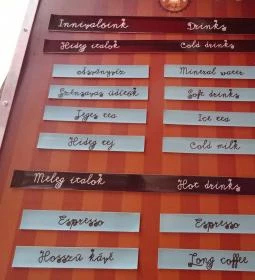 Innivalóink Drinks
Hideg italok Cold drinks
ásványvíz Mineral water
Szénsavas üdítők Soft drinks
Jeges tea Ice tea
Hideg tej Cold milk
Meleg italok Hot drinks
Espresso Espresso
Hosszú kávé Long coffee